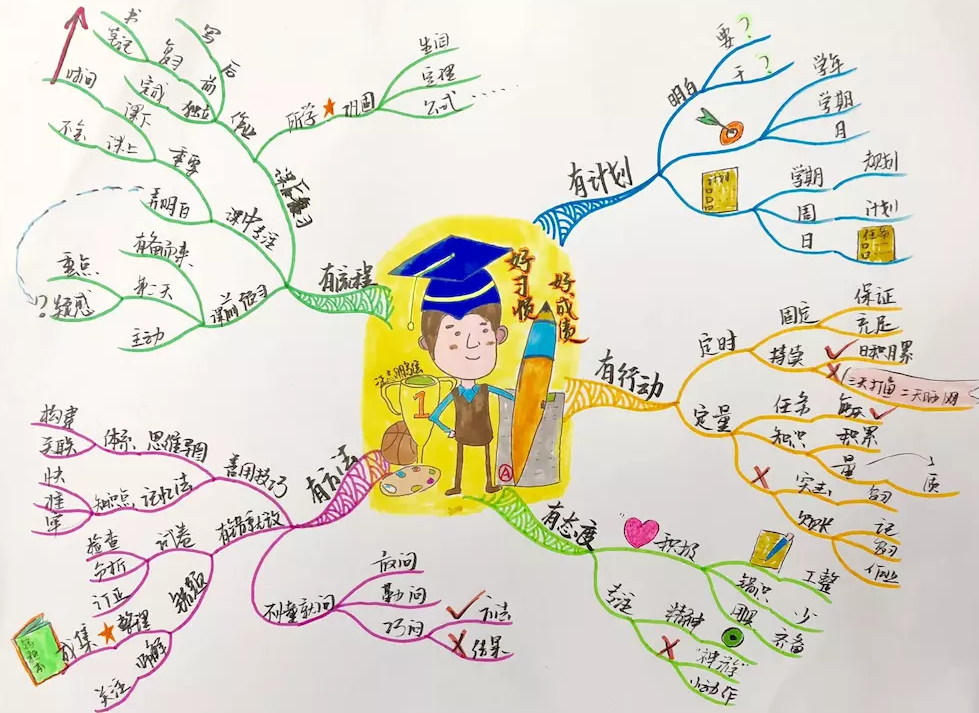 好习惯
好成绩
1
A
有计划
明白
要?
干?
学年
学期
月
计划
学期
规划
周
计划
日
任务
有行动
定时
固定
保证
充足
持续
日积月累
三天打鱼二天晒网
定量
任务
每天
知识
积累
量
质
突击
复习
欠账
记
复习
作业
有态度
积极
错识
少
工整
用具
齐备
专注
精神
"神游"
小动作
有方法
善用技巧
思维导图
体系
构建
关联
记忆法
知识点
快
准
牢
有错就改
试卷
检查
分析
订正
错题
整理
成集
错题本
理解
关注
不懂就问
敢问
勤问
巧问
方法
结果
有流程
课前预习
主动
第一天
有备而来
重点
疑惑
?
课中专注
弄明白
重要
课上
不会
课下
时间
课后复习
作业
独立
完成
前
复习
书
笔记
后
写
所学
巩固
生词
定理
公式……